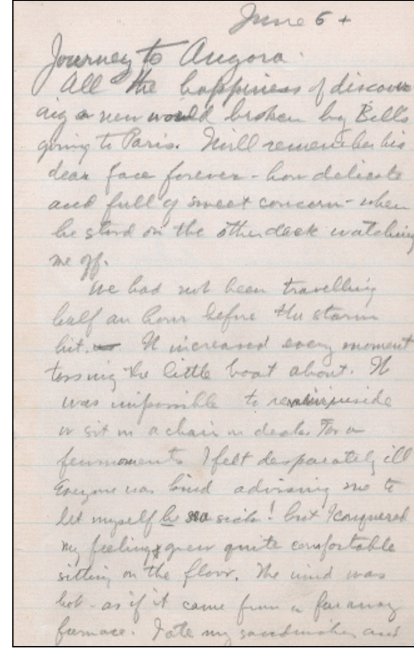 June 6 +
Journey to Angora.
All the happiness of discover
ing a new world broken by Bill's
going to Paris. I will remember his
dear face forever - how delicate
and full of sweet concern - when
he stood on the other deck watching
me off.
We had not been travelling
half an hour before the storm
hit. It increased every moment
tossing the little boat about. It
was impossible to inside
or sit in a chair on deck. For a
few moments I felt desparately ill
Everyone was kind advising me to
let myself be sea sick! but I conquered
my feeling & grew quite comfortable
sitting on the floor. The wind was
hot - as if it came from a far away
furnace. I ate my sandwiches and